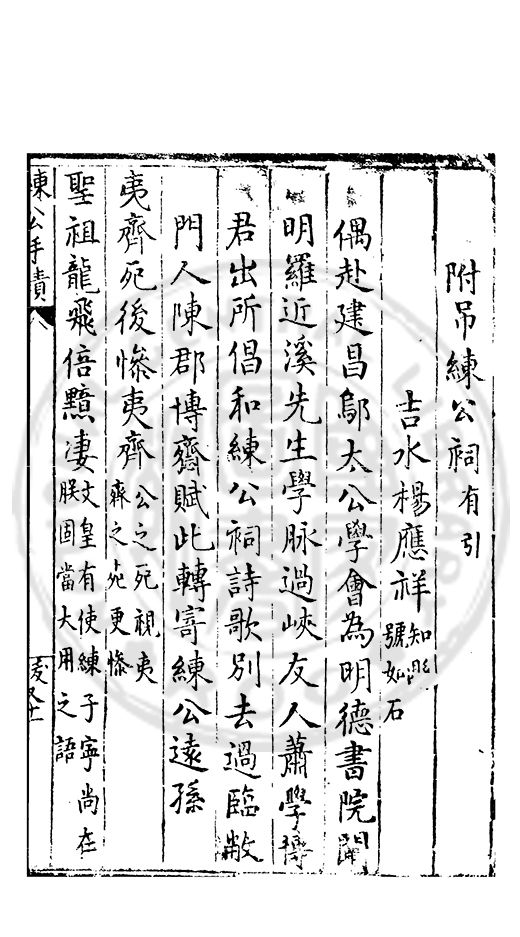 附吊練公祠有引
吉水楊應祥知縣號如石
偶赴建昌鄔太公學會為明德書院闡
明羅近溪先生學脉過峽友人蕭學博
君出所倡和練公祠詩歌別去過臨敝
門人陳郡博齋賦此轉寄練公遠孫
夷齊死後慘夷齊公之死視夷齊之死更慘
聖祖龍飛倍黯凄文皇有使練子寧尚在朕固當大用之語
練公手責